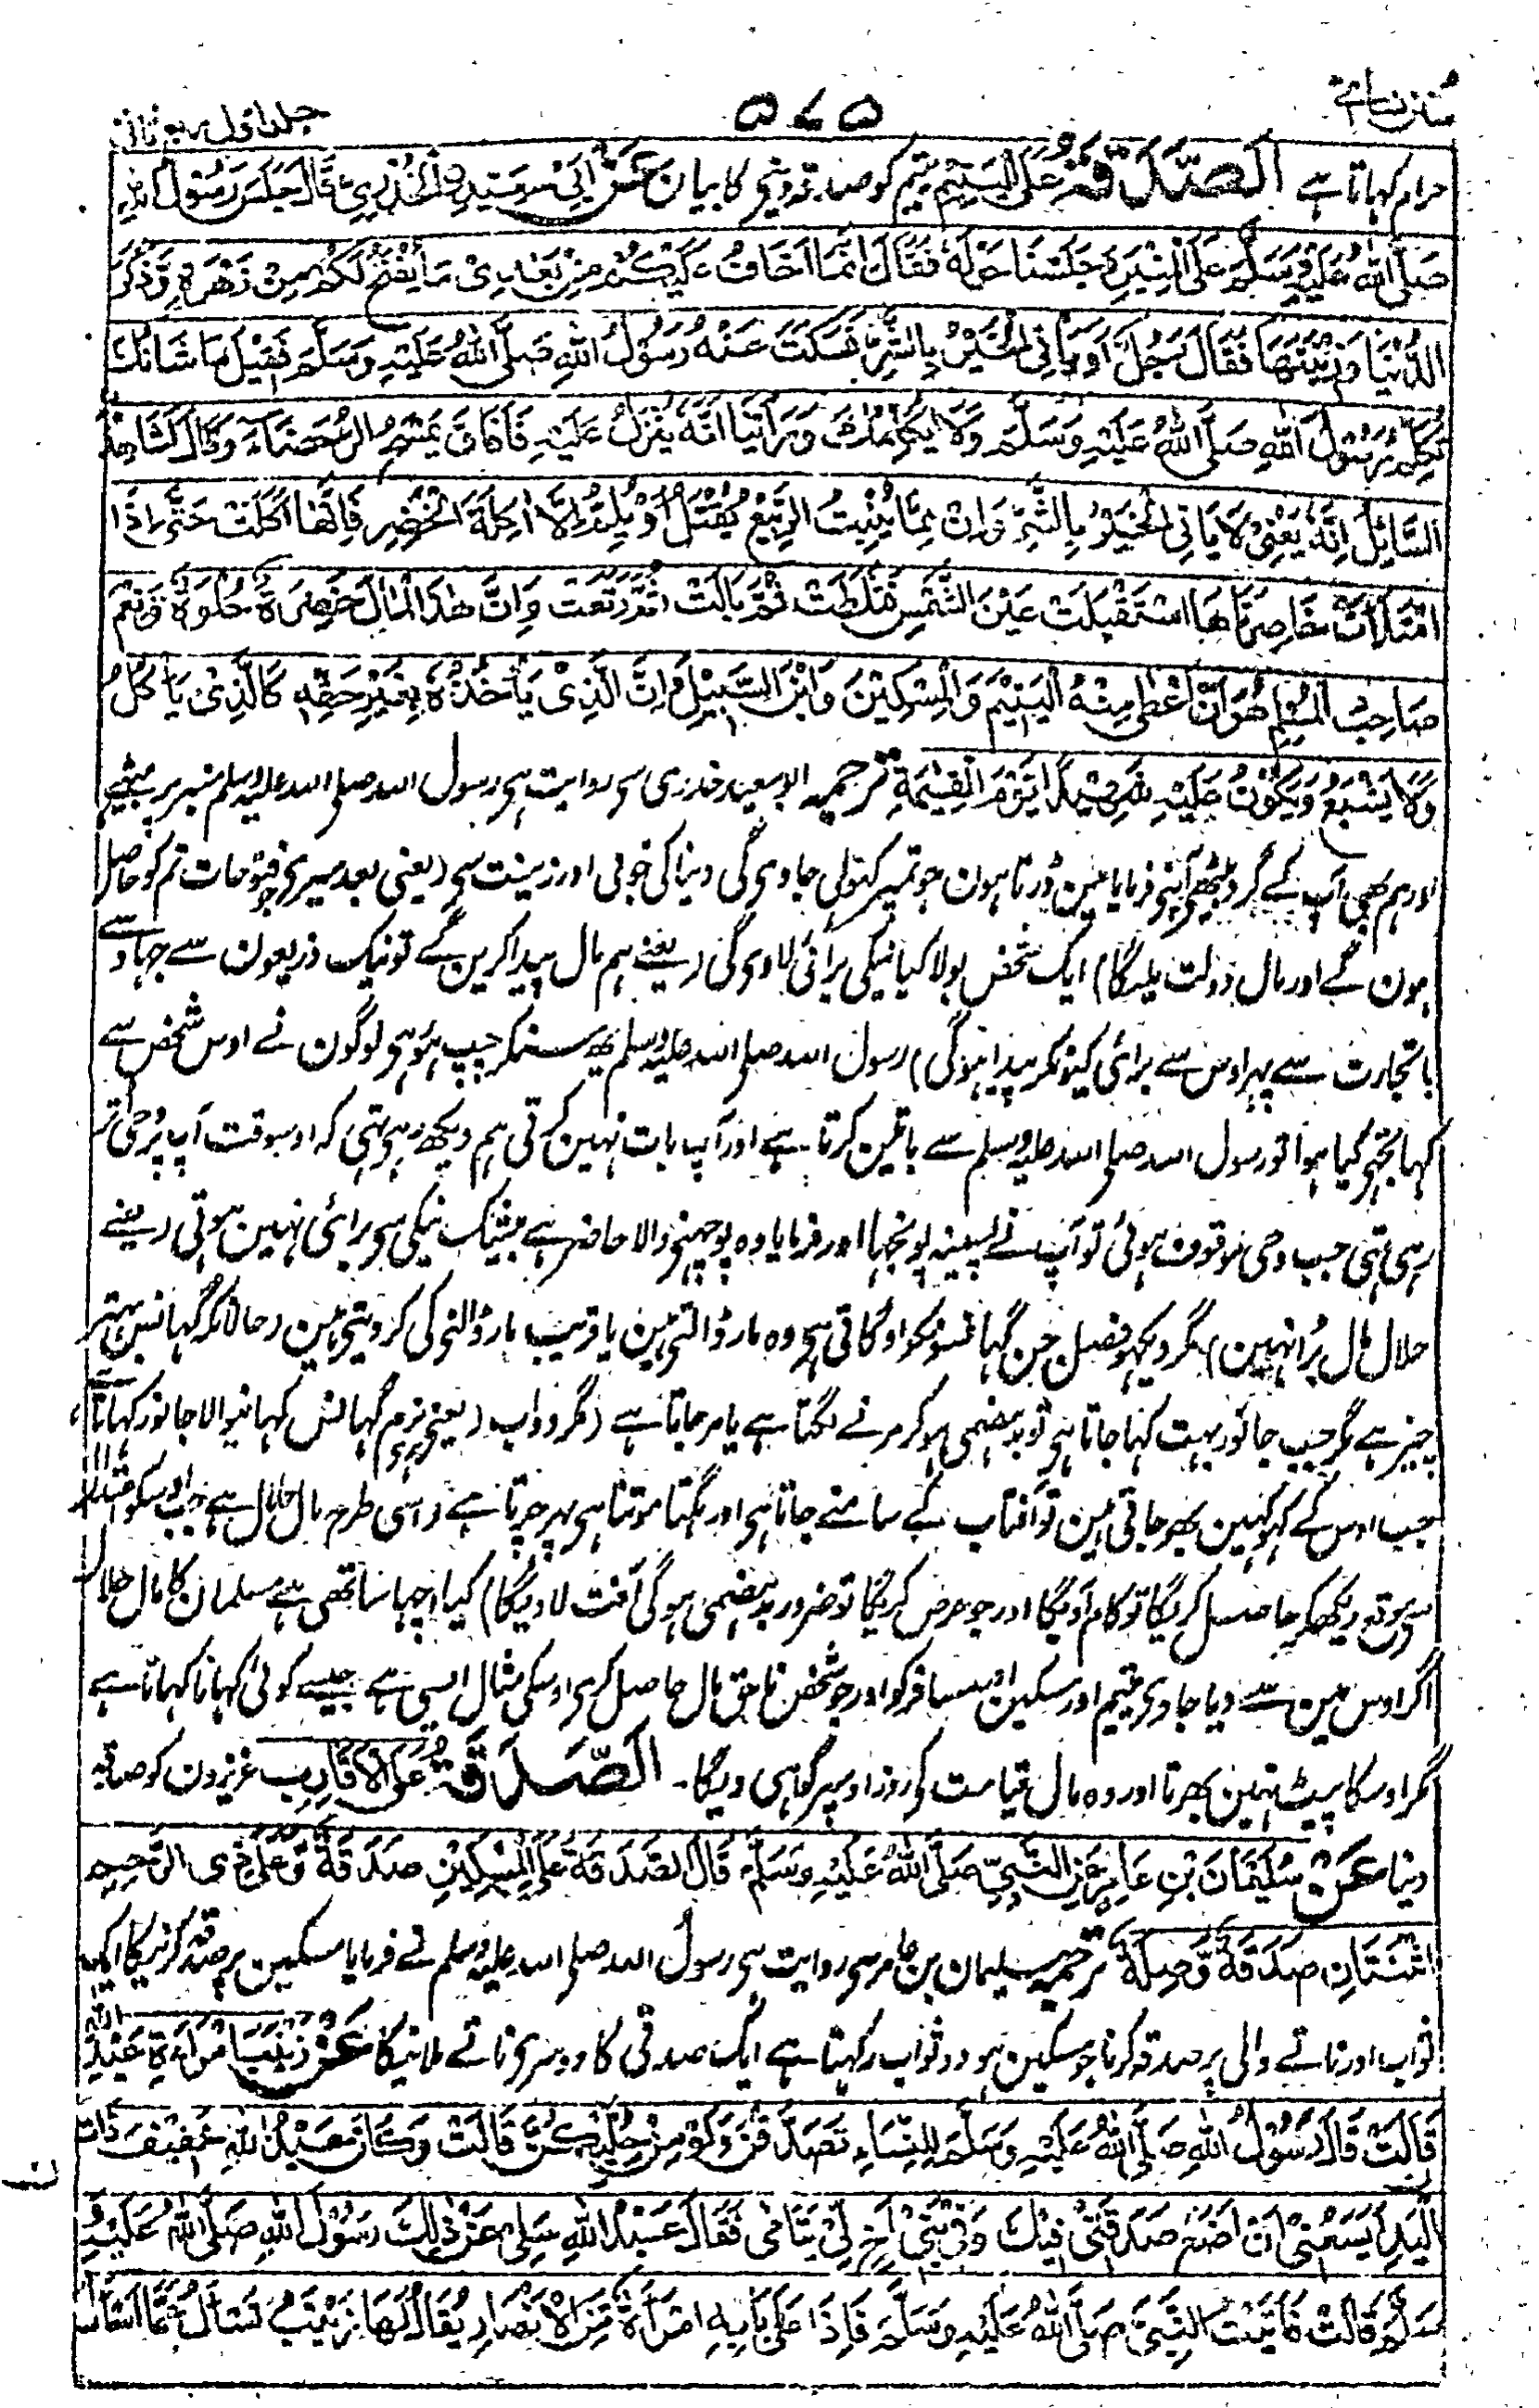 سنن نسائی ۵۷۵ جلد اول ربع ثانی
حرام کہاتا ہے الصَّدَقَةُ عَلَى الْيَتِيْمِ یتیم کو صدقہ دینے کا بیان عَنْ اَبِيْ سَعِيْدِ الْخُدْرِيِّ قَالَ جَلَسَ رَسُوْلُ اللهِ
صَلَّى اللهُ عَلَيْهِ وَسَلَّمَ عَلَى الْمِنْبَرِ وَجَلَسْنَا حَوْلَهُ فَقَالَ اِنَّمَا اَخَافُ عَلَيْكُمْ مِنْ بَعْدِيْ مَا يُفْتَحُ لَكُمْ مِنْ زَهْرَةٍ وَذَكَرَ
الدُّنْيَا وَزِيْنَتَهَا فَقَالَ رَجُلٌ اَوَيَاْتِي الْخَيْرُ بِالشَّرِّ فَسَكَتَ عَنْهُ رَسُوْلُ اللهِ صَلَّى اللهُ عَلَيْهِ وَسَلَّمَ فَقِيْلَ مَا شَاْنُكَ
تُكَلِّمُ رَسُوْلَ اللهِ صَلَّى اللهُ عَلَيْهِ وَسَلَّمَ وَلَا يُكَلِّمُكَ وَرَاَيْنَا اَنَّهُ يُنْزَلُ عَلَيْهِ فَاَفَاقَ يَمْسَحُ الرُّحَضَاءَ وَقَالَ اَشَاهِدٌ
السَّائِلُ اِنَّهُ يَعْنِيْ لَا يَاْتِي الْخَيْرُ بِالشَّرِّ وَاِنَّ مِمَّا يُنْبِتُ الرَّبِيْعُ يَقْتُلُ اَوْ يُلِمُّ اِلَّا اٰكِلَةَ الْخَضِرِ فَاِنَّهَا اَكَلَتْ حَتّٰى اِذَا
امْتَدَّتْ خَاصِرَتَاهَا اسْتَقْبَلَتْ عَيْنَ الشَّمْسِ فَثَلَطَتْ ثُمَّ بَالَتْ ثُمَّ رَتَعَتْ وَاِنَّ هٰذَا الْمَالَ خَضِرَةٌ حُلْوَةٌ وَنِعْمَ
صَاحِبُ الْمُسْلِمِ هُوَ اِنْ اَعْطٰى مِنْهُ الْيَتِيْمَ وَالْمِسْكِيْنَ وَابْنَ السَّبِيْلِ وَاِنَّ الَّذِيْ يَاْخُذُهُ بِغَيْرِ حَقِّهِ كَالَّذِيْ يَاْكُلُ
وَلَا يَشْبَعُ وَيَكُوْنُ عَلَيْهِ شَهِيْدًا يَوْمَ الْقِيٰمَةِ ترجمہ ابوسعید خدری سے روایت ہی رسول اللہ صلی اللہ علیہ وسلم منبر پر بیٹھے
اور ہم بھی آپ کے گرد بیٹھے آپنے فرمایا مین ڈرتا ہون جو تمپر کہولی جاوی گی دنیا کی خوبی اور زینت سے (یعنی بعد میرے جو فتوحات تم کو حاصل
ہون گے اور مال دولت ملیگا) ایک شخص بولا کیا نیکی برائی لاوی گی (یعنے ہم مال پیدا کرین گے تو نیک ذریعون سے جہاد سے
یا تجارت سے پہر اوس سے برائی کیونکر پیدا ہوگی) رسول اللہ صلی اللہ علیہ وسلم یہ سنکر چپ ہو رہی لوگون نے اوس شخص سے
کہا تجہے کیا ہوا تو رسول اللہ صلی اللہ علیہ وسلم سے باتین کرتا ہے اور آپ بات نہین کرتی ہم دیکھ رہے تہی کہ اوسوقت آپ پر وحی اتر
رہی تہی جب وحی موقوف ہوئی تو آپ نے پسینہ پونچہا اور فرمایا وہ پوچہنے والا حاضر ہے بیشک نیکی سے برائی نہین ہوتی (یعنے
حلال مال برا نہین) مگر دیکہو فصل جن گہانسونکو اوگاتی ہے وہ مار ڈالتی ہین یا قریب مار ڈالنی کی کر دیتی ہین (حالانکہ گہانس بہتر
چیز ہے مگر جب جانور بہت کہا جاتا ہی تو بدہضمی ہوکر مرنے لگتا ہے یا مر جاتا ہے (مگر دواب (یعنی نرم ہری گہانس کہانیوالا جانور کہاتا ہے
جب اوس کے کہوکہین بھر جاتی ہین تو آفتاب کے سامنے جاتا ہی اور ہگتا موتتا ہی پہر چرتا ہے (اسی طرح مال حلال ہے جب اوسکو اعتدال
سے موقع دیکھکر حاصل کریگا تو کام آویگا اور جو حرص کریگا تو ضرور بدہضمی ہوگی آفت لاویگا) کیا اچہا ساتھی ہے مسلمان کا مال حلال
اگر اوس مین سے دیا جاوی یتیم اور مسکین اور مسافر کو اور جو شخص ناحق مال حاصل کری اوسکی مثال ایسی ہے جیسے کوئی کہانا کہاتا ہے
مگر اوسکا پیٹ نہین بھرتا اور وہ مال قیامت کی روز اوسپر گواہی دیگا۔ الصَّدَقَةُ عَلَى الْاَقَارِبِ عزیزون کو صدقہ
دینا عَنْ سُلَيْمَانَ بْنِ عَامِرٍ عَنِ النَّبِيِّ صَلَّى اللهُ عَلَيْهِ وَسَلَّمَ قَالَ الصَّدَقَةُ عَلَى الْمِسْكِيْنِ صَدَقَةٌ وَعَلٰى ذِي الرَّحِمِ
اثْنَتَانِ صَدَقَةٌ وَصِلَةٌ ترجمہ سلیمان بن عامر سے روایت ہی رسول اللہ صلی اللہ علیہ وسلم نے فرمایا مسکین پر صدقہ کرنیکا ایک
ثواب اور ناتے والی پر صدقہ کرنا جو مسکین ہو دو ثواب رکہتا ہے ایک صدقی کا دوسرے ناتے ملانیکا عَنْ زَيْنَبَ امْرَاَةِ عَبْدِ اللهِ
قَالَتْ قَالَ رَسُوْلُ اللهِ صَلَّى اللهُ عَلَيْهِ وَسَلَّمَ لِلنِّسَاءِ تَصَدَّقْنَ وَلَوْ مِنْ حُلِيِّكُنَّ قَالَتْ وَكَانَ عَبْدُ اللهِ خَفِيْفَ ذَاتِ
الْيَدِ اَيَسَعُنِيْ اَنْ اَضَعَ صَدَقَتِيْ فِيْكَ وَفِيْ بَنِيْ اَخٍ لِيْ يَتَامٰى فَقَالَ عَبْدُ اللهِ سَلِيْ عَنْ ذٰلِكَ رَسُوْلَ اللهِ صَلَّى اللهُ عَلَيْهِ
وَسَلَّمَ قَالَتْ فَاَتَيْتُ النَّبِيَّ صَلَّى اللهُ عَلَيْهِ وَسَلَّمَ فَاِذَا عَلٰى بَابِهِ امْرَاَةٌ مِنَ الْاَنْصَارِ يُقَالُ لَهَا زَيْنَبُ تَسْاَلُ عَمَّا اَسْاَلُ